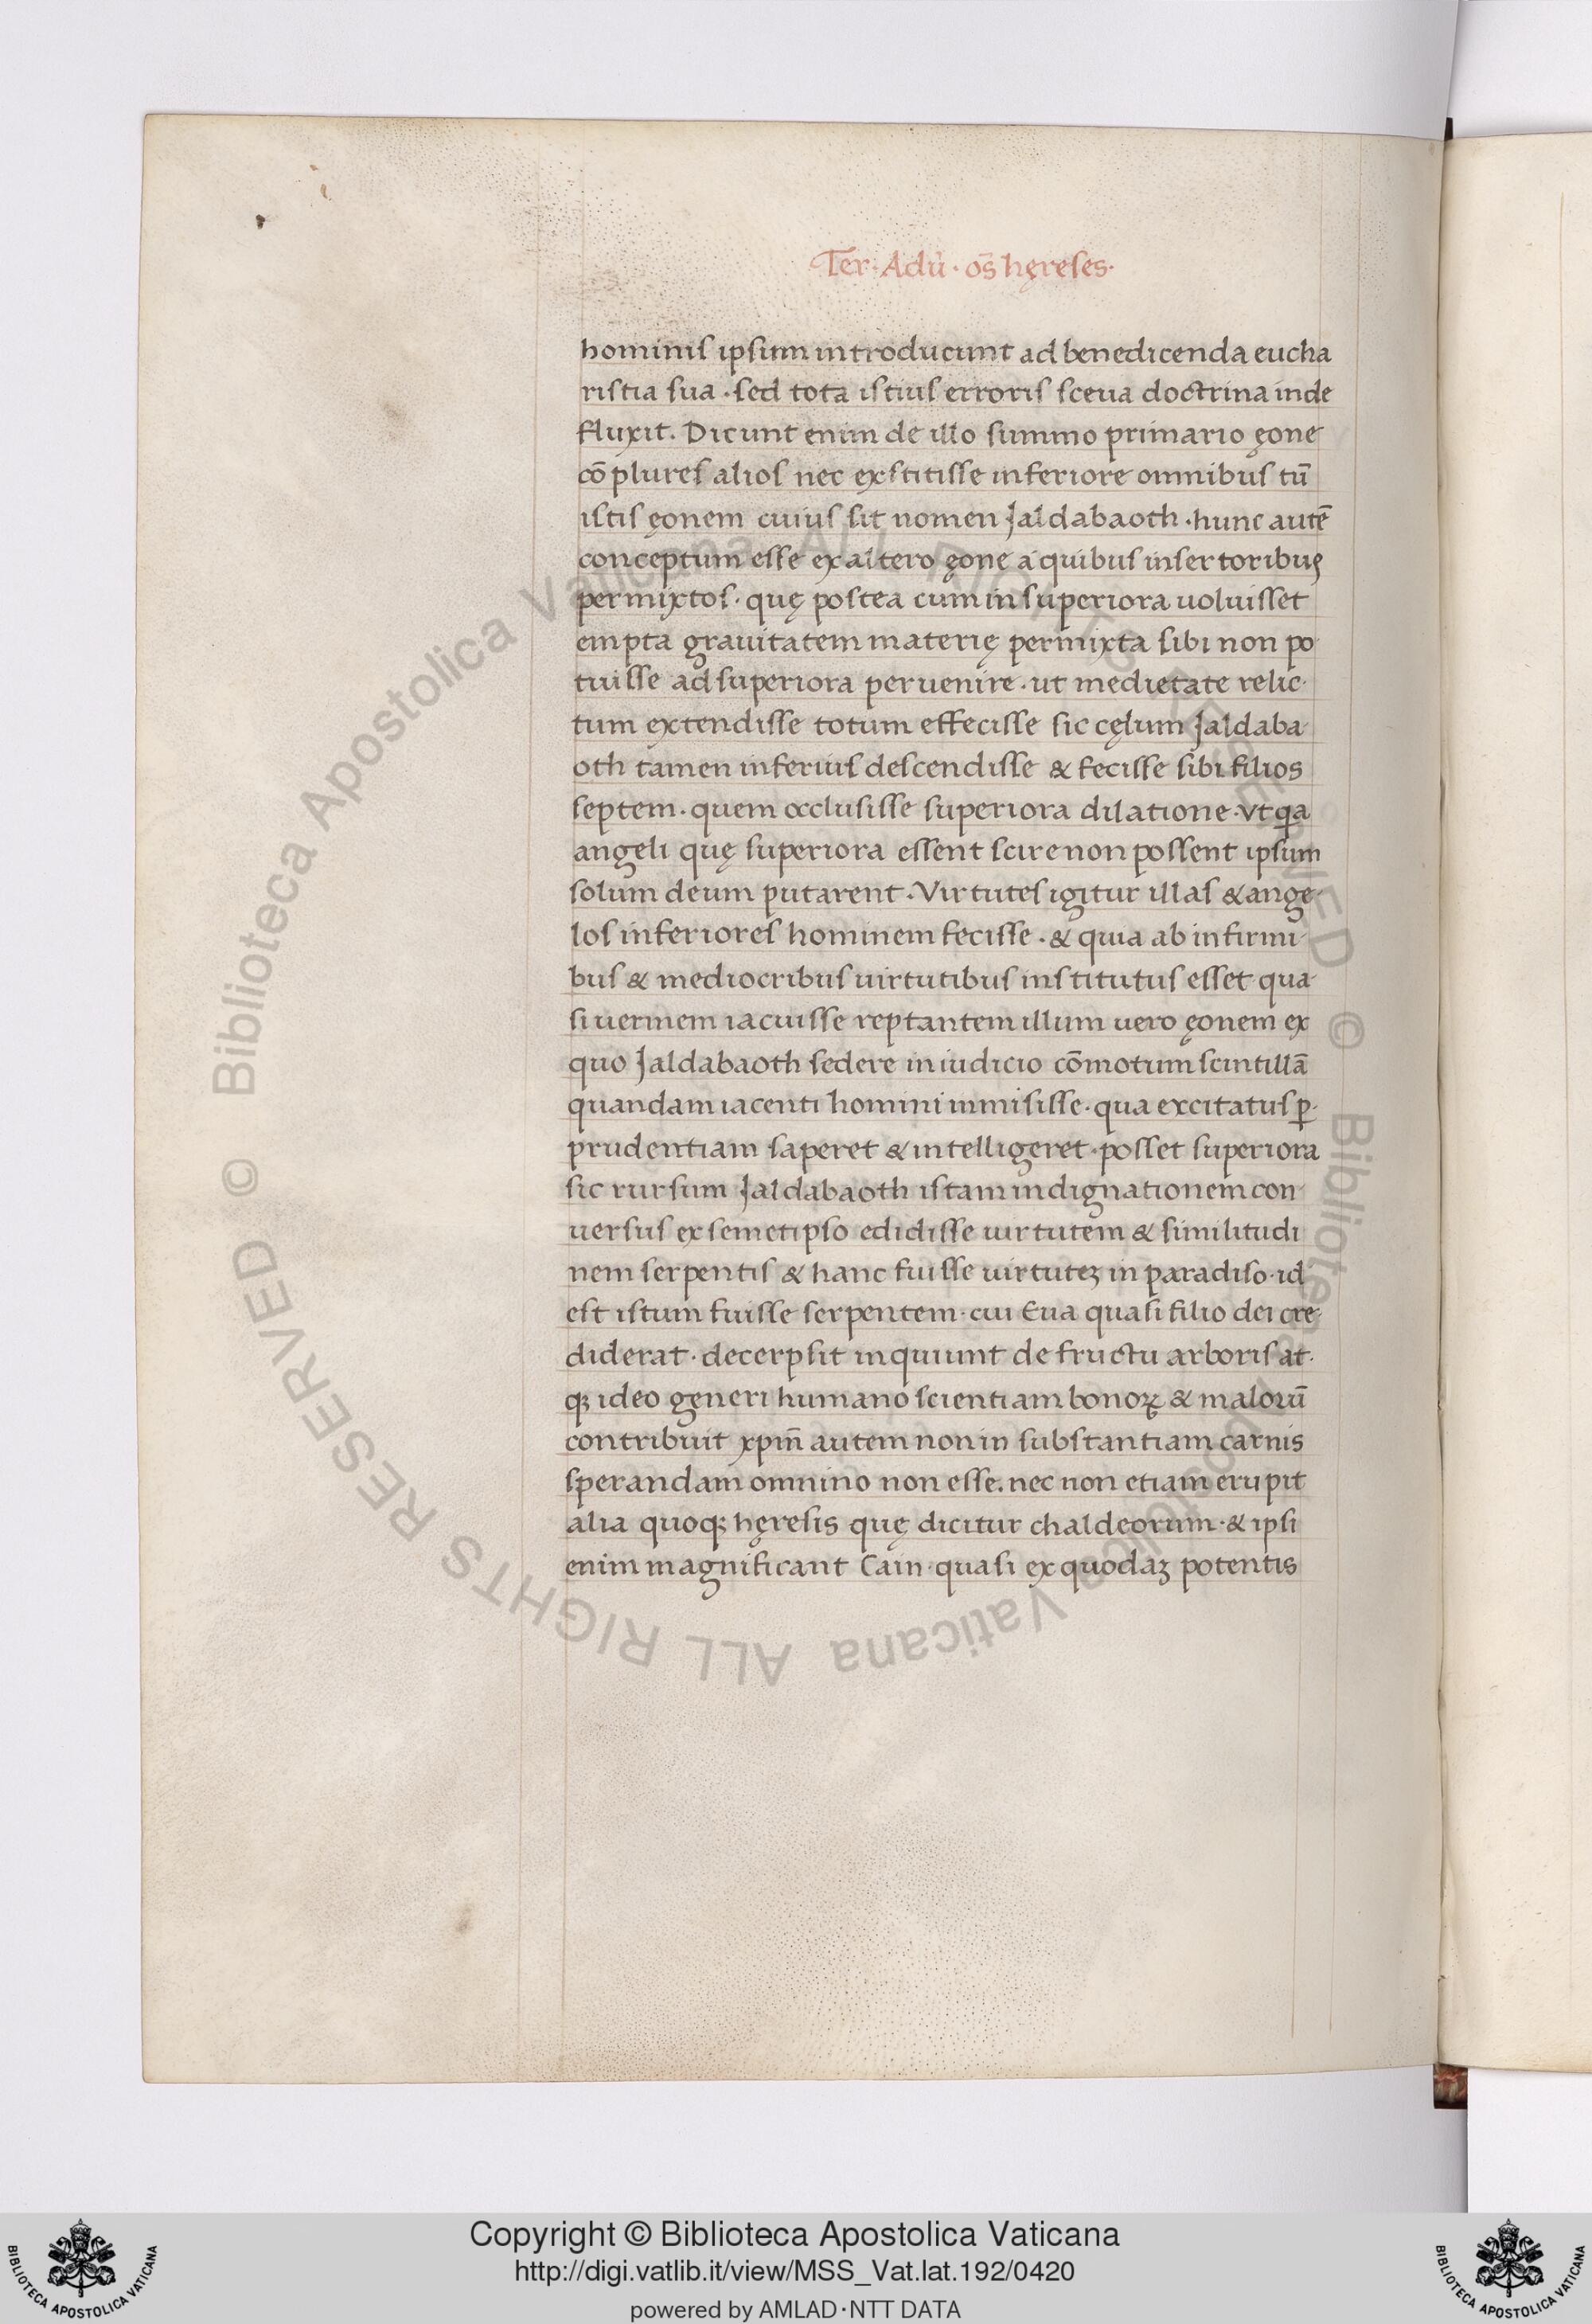 Ter· Adū· oēs hęreses·
hominis ipsum introducunt ad benedicenda eucha
ristia sua · sed tota istius erroris sceua doctrina inde
fluxit. Dicunt enim de illo summo primario ęone
cō plures alios nec exstitisse inferiore omnibus tū
istis ęonem cuius sit nomen Jaldabaoth · hunc autē
conceptum esse ex altero ęone a quibus insertoribus
permixtos · quę postea cum in superiora uoluisset
empta grauitatem materię permixta sibi non po
tuisse ad superiora peruenire · ut medietate relic-
tum extendisse totum effecisse sic cęlum Jaldaba-
oth tamen inferius descendisse & fecisse sibi filios
septem · quem occlusisse superiora dilatione · vt qa
angeli quę superiora essent scire non possent ipsum
solum deum putarent · Virtutes igitur illas & ange-
los inferiores hominem fecisse · & quia ab infirmi-
bus & mediocribus uirtutibus institutus esset qua-
si uermem iacuisse reptantem illum uero ęonem ex
quo Jaldabaoth sedere in iudicio cōmotum scintillā
quandam iacenti homini inmisisse · qua excitatus ꝑ-
prudentiam saperet & intelligeret · posset superiora
sic rursum Jaldabaoth istam indignationem con-
uersus ex semetipso edidisse uirtutem & similitudi
nem serpentis & hanc fuisse uirtuteꝫ in paradiso · id
est istum fuisse serpentem · cui Eua quasi filio dei cre-
diderat · decerpsit inquiunt de fructu arboris at-
qꝫ ideo generi humano scientiam bonoꝝ & malorū
contribuit xpm̄ autem non in substantiam carnis
sperandam omnino non esse. nec non etiam erupit
alia quoqꝫ hęresis quę dicitur chaldeorum · & ipsi
enim magnificant Cain · quasi ex quodaꝫ potentis
© Biblioteca Apostolica Vaticana ALL RIGHTS RESERVED © Biblioteca Apostolica Vaticana ALL RIGHTS RESERVED
Copyright © Biblioteca Apostolica Vaticana
http://digi.vatlib.it/view/MSS_Vat.lat.192/0420
powered by AMLAD·NTT DATA
BIBLIOTECA APOSTOLICA VATICANA
BIBLIOTECA APOSTOLICA VATICANA